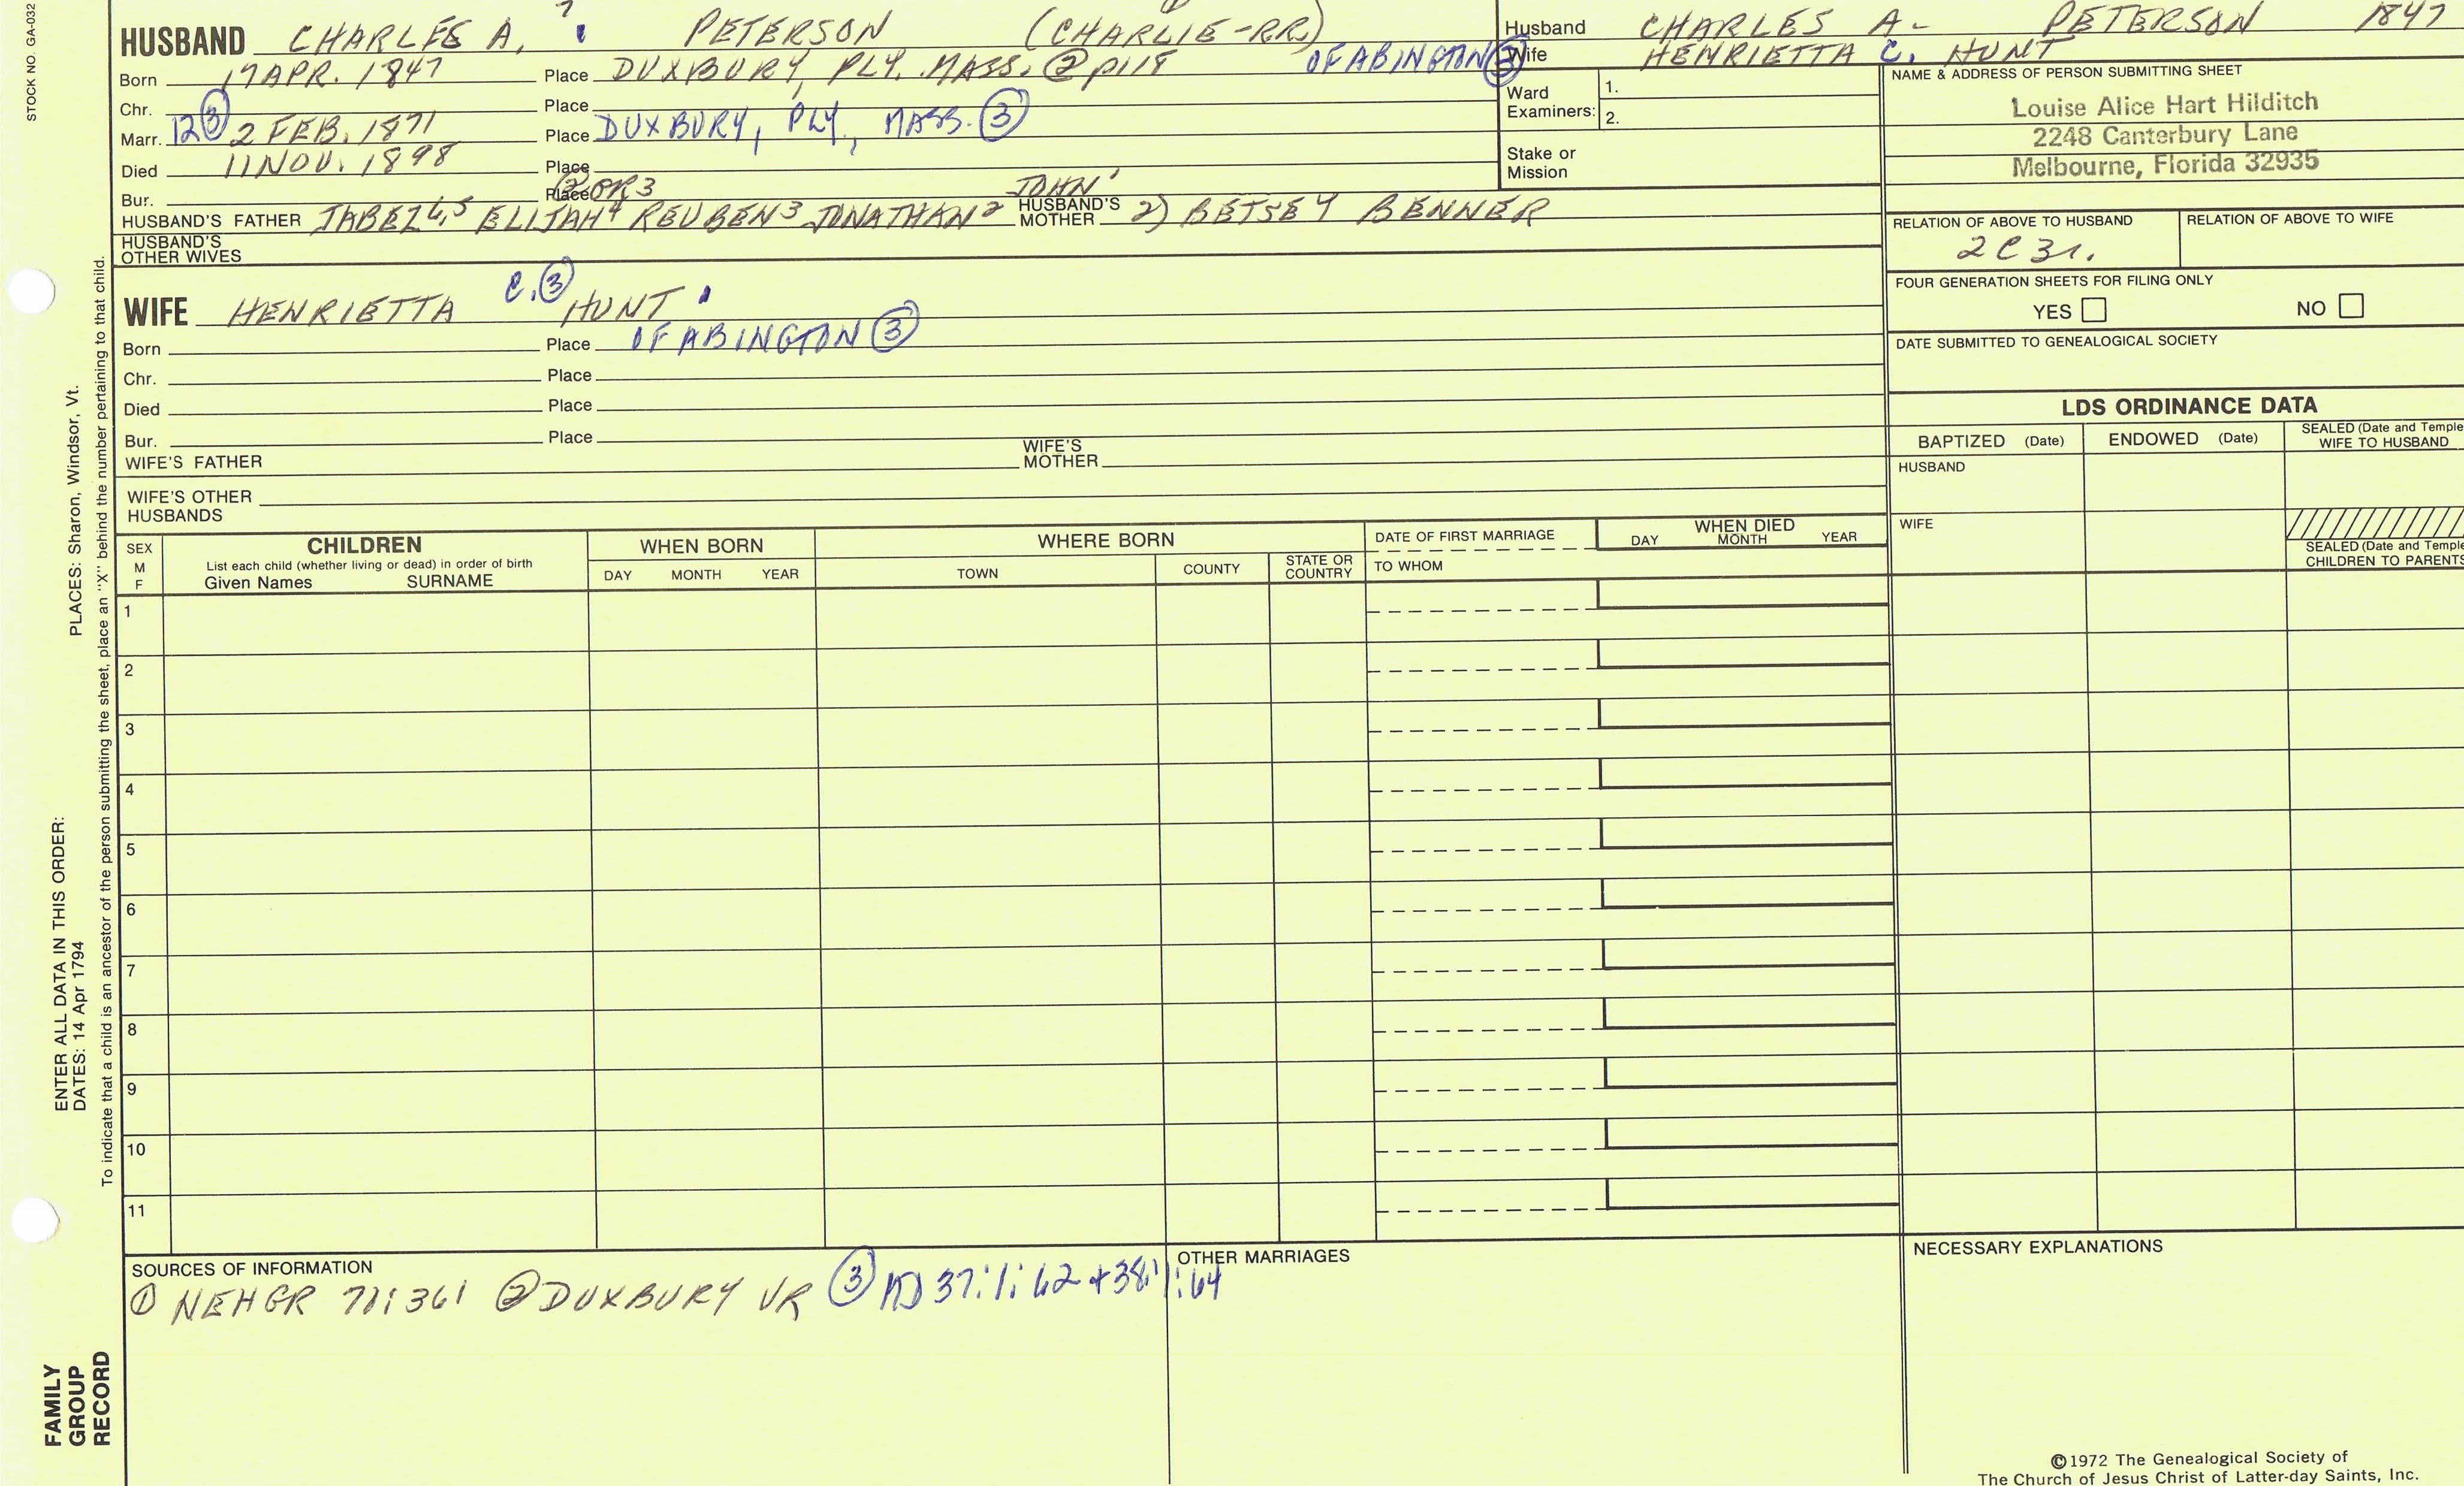 STOCK NO. GA-032
HUSBAND CHARLES A. PETERSON (CHARLIE-RR)
Born 17 APR. 1847 Place DUXBURY, PLY. MASS. ② p118 OF ABINGTON ③
Chr. Place
Marr. 12 ③ 2 FEB. 1871 Place DUXBURY, PLY., MASS. ③
Died 11 NOV. 1898 Place
Bur. Place ② OR 3
HUSBAND'S FATHER JABEZ 6,5 ELIJAH 4 REUBEN 3 JONATHAN 2 JOHN' HUSBAND'S MOTHER 2) BETSEY BENNER
HUSBAND'S OTHER WIVES
WIFE HENRIETTA C. ③ HUNT
Born Place OF ABINGTON ③
Chr. Place
Died Place
Bur. Place
WIFE'S FATHER WIFE'S MOTHER
WIFE'S OTHER HUSBANDS
Husband CHARLES A- PETERSON 1847
Wife HENRIETTA C. HUNT
Ward Examiners: 1.
2.
Stake or Mission
NAME & ADDRESS OF PERSON SUBMITTING SHEET
Louise Alice Hart Hilditch
2248 Canterbury Lane
Melbourne, Florida 32935
RELATION OF ABOVE TO HUSBAND RELATION OF ABOVE TO WIFE
2C3r.
FOUR GENERATION SHEETS FOR FILING ONLY
YES NO
DATE SUBMITTED TO GENEALOGICAL SOCIETY
LDS ORDINANCE DATA
BAPTIZED (Date) ENDOWED (Date) SEALED (Date and Temple
WIFE TO HUSBAND
HUSBAND
WIFE
SEALED (Date and Temple
CHILDREN TO PARENTS
SEX
M
F
CHILDREN
List each child (whether living or dead) in order of birth
Given Names SURNAME
WHEN BORN
DAY MONTH YEAR
WHERE BORN
TOWN COUNTY STATE OR COUNTRY
DATE OF FIRST MARRIAGE
TO WHOM
WHEN DIED
DAY MONTH YEAR
1
2
3
4
5
6
7
8
9
10
11
SOURCES OF INFORMATION
① NEHGR 71:361 ② DUXBURY VR ③ MD 37:1:62 + 38:1:64
OTHER MARRIAGES
NECESSARY EXPLANATIONS
©1972 The Genealogical Society of
The Church of Jesus Christ of Latter-day Saints, Inc.
PLACES: Sharon, Windsor, Vt.
ENTER ALL DATA IN THIS ORDER:
DATES: 14 Apr 1794
To indicate that a child is an ancestor of the person submitting the sheet, place an "X" behind the number pertaining to that child.
FAMILY
GROUP
RECORD